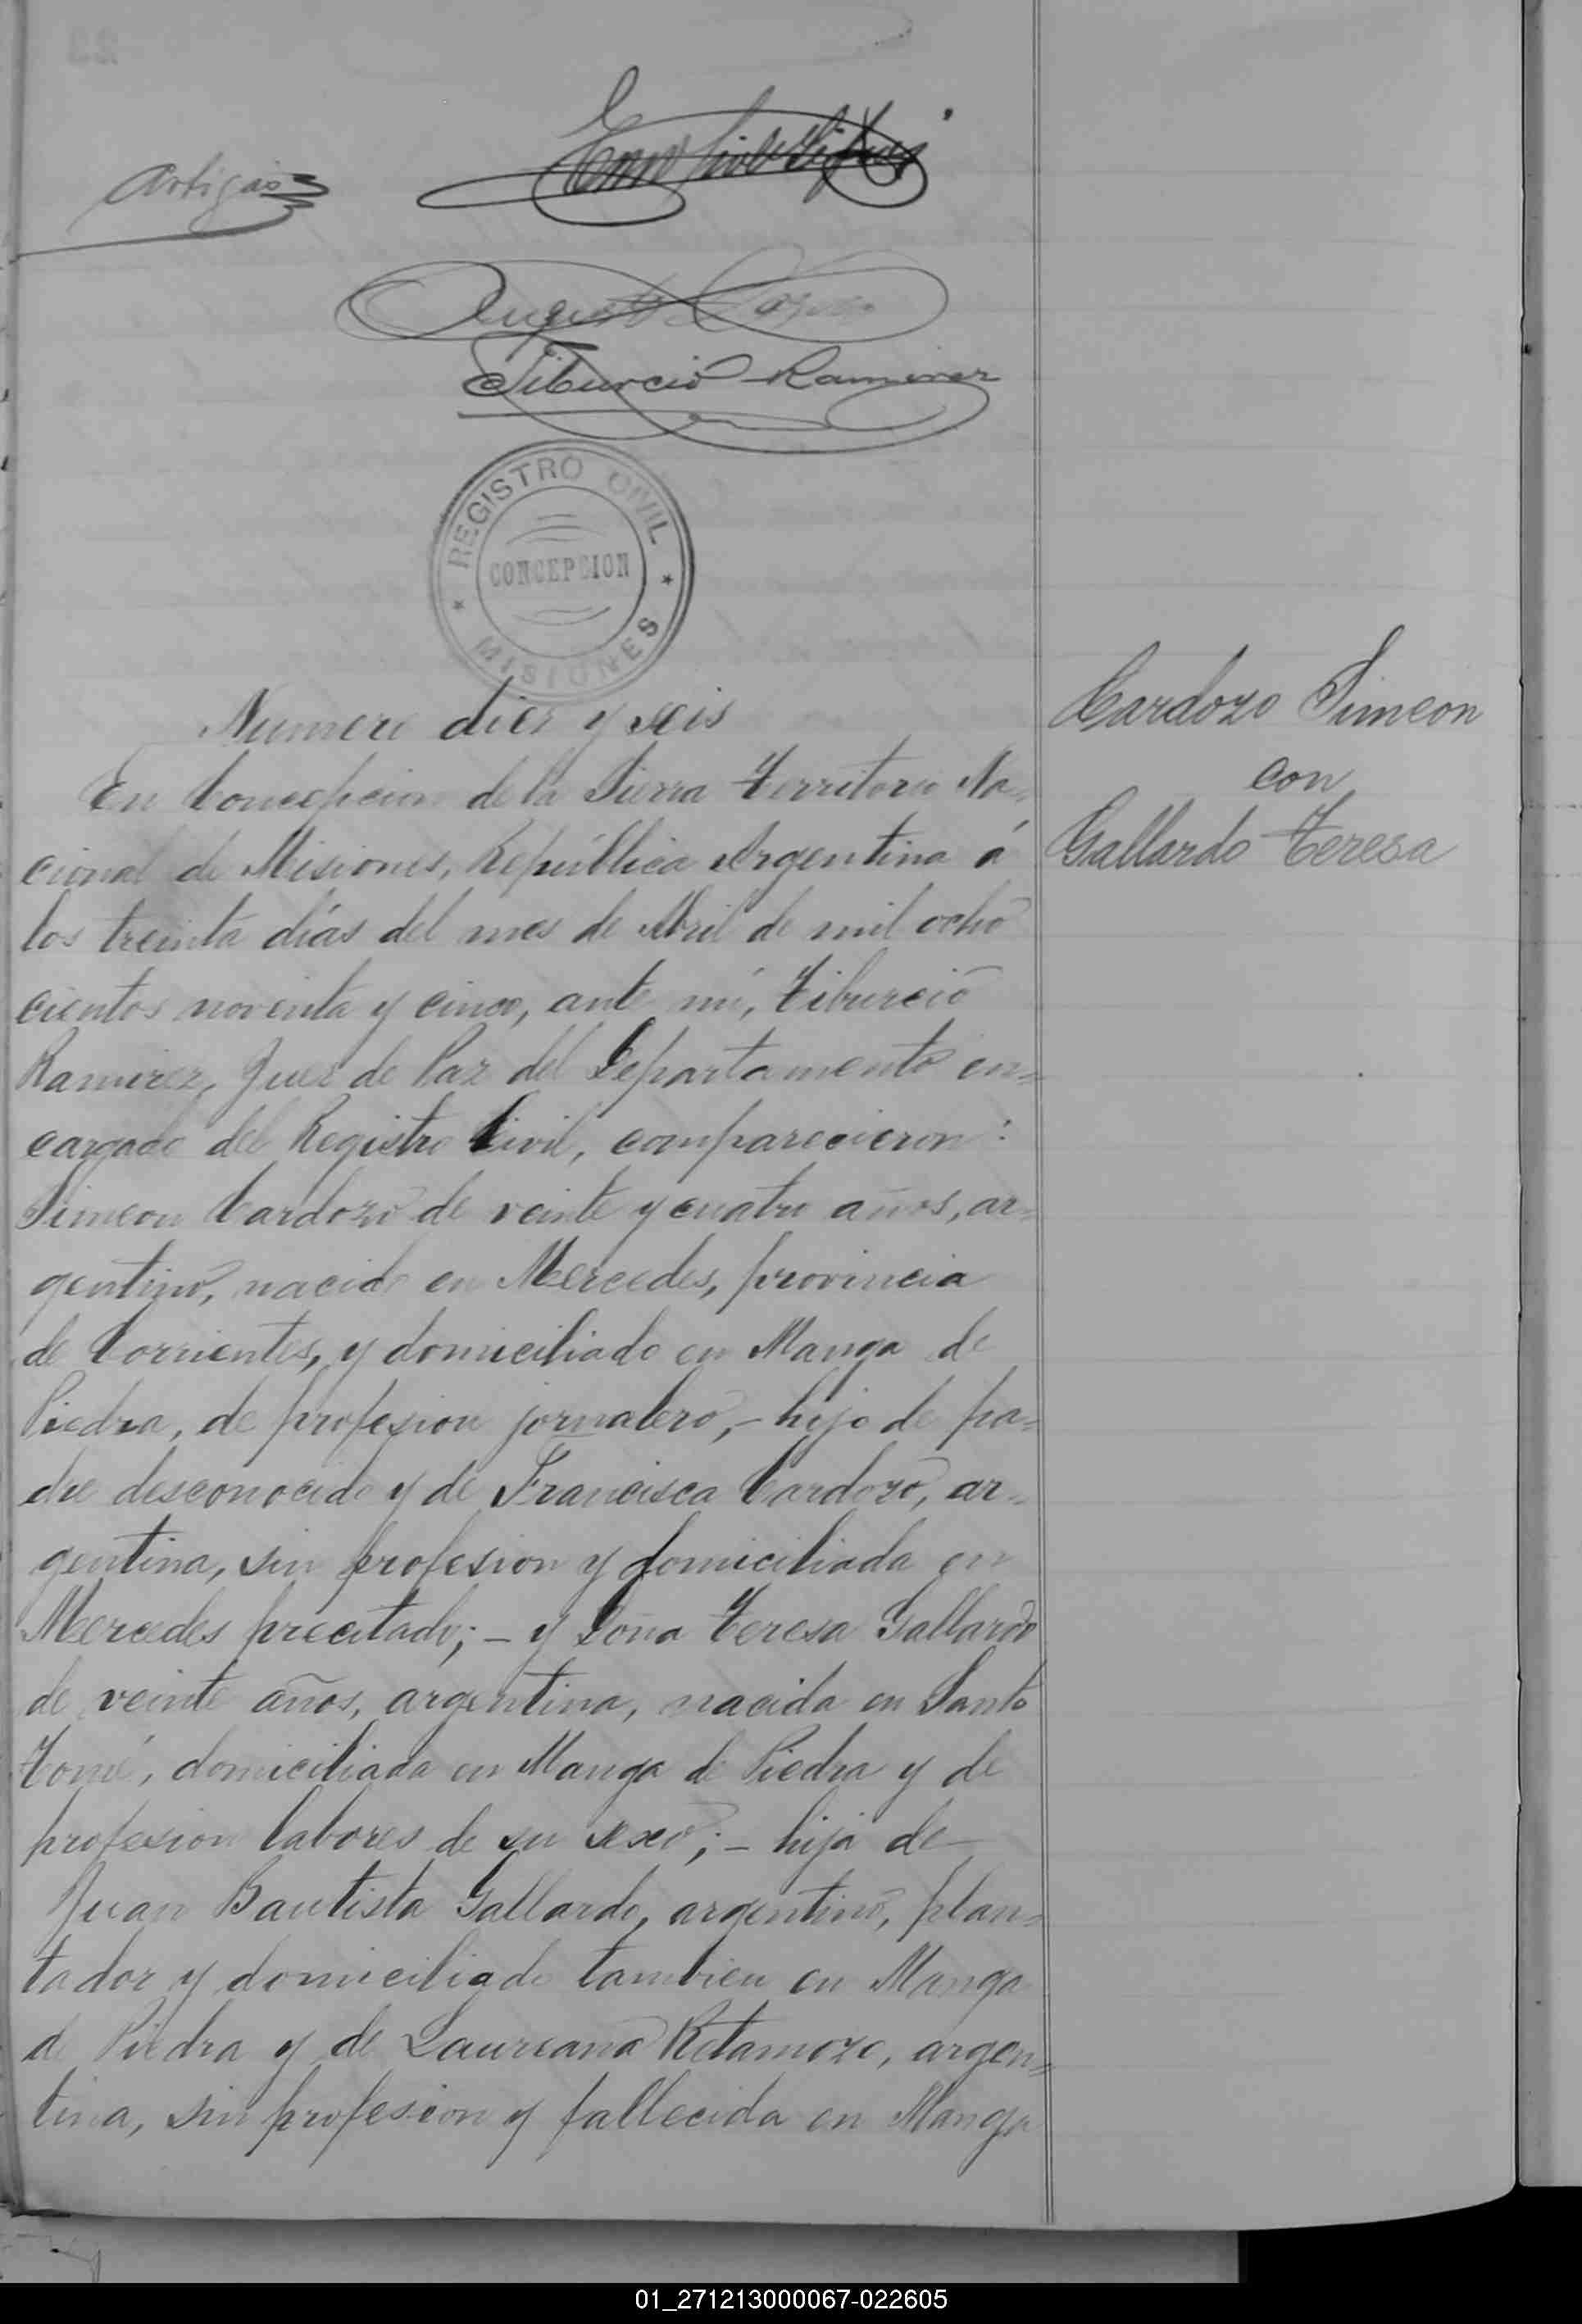 Artigas
Tiburcio Ramirez
REGISTRO CIVIL
CONCEPCION
MISIONES
Numero diez y seis
En Concepcion de la Sierra Territorio Na=
cional de Misiones, República Argentina á
los treinta días del mes de Abril de mil ocho
cientos noventa y cinco, ante mí, Tiburcio
Ramirez, Juez de Paz del Departamento en=
cargado del Registro Civil, comparecieron:
Simeon Cardozo de veinte y cuatro años, ar=
gentino, nacido en Mercedes, provincia
de Corrientes, y domiciliado en Manga de
Piedra, de profesion jornalero,- hijo de pa=
dre desconocido y de Francisca Cardozo, ar=
gentina, sin profesion y domiciliada en
Mercedes precitado; - y Doña Teresa Gallardo
de veinte años, argentina, nacida en Santo
Tomé, domiciliada en Manga de Piedra y de
profesion labores de su sexo; - hija de
Juan Bautista Gallardo, argentino, plan=
tador y domiciliado tambien en Manga
de Piedra y de Laureana Retamozo, argen=
tina, sin profesion y fallecida en Manga
Cardozo Simeon
con
Gallardo Teresa
01_271213000067-022605